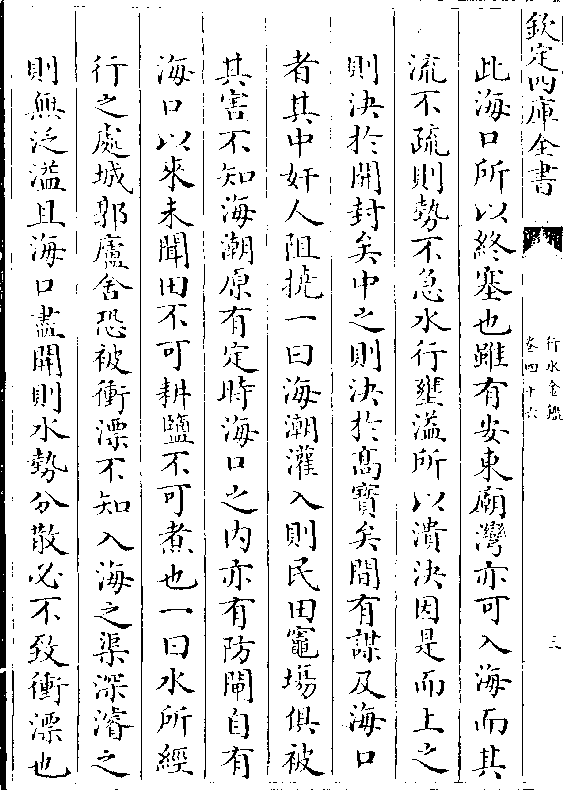 欽定四庫全書
行水金鑑
卷四十六
三
此海口所以終塞也雖有安東廟灣亦可入海而其
流不疏則勢不急水行壅溢所以潰決因是而上之
則決於開封矣中之則決於髙寳矣間有謀及海口
者其中奸人阻撓一曰海潮灌入則民田竈塲俱被
其害不知海潮原有定時海口之内亦有防閘自有
海口以來未聞田不可耕鹽不可煮也一曰水所經
行之處城郭廬舍恐被衝漂不知入海之渠深濬之
則無泛溢且海口盡開則水勢分散必不致衝漂也